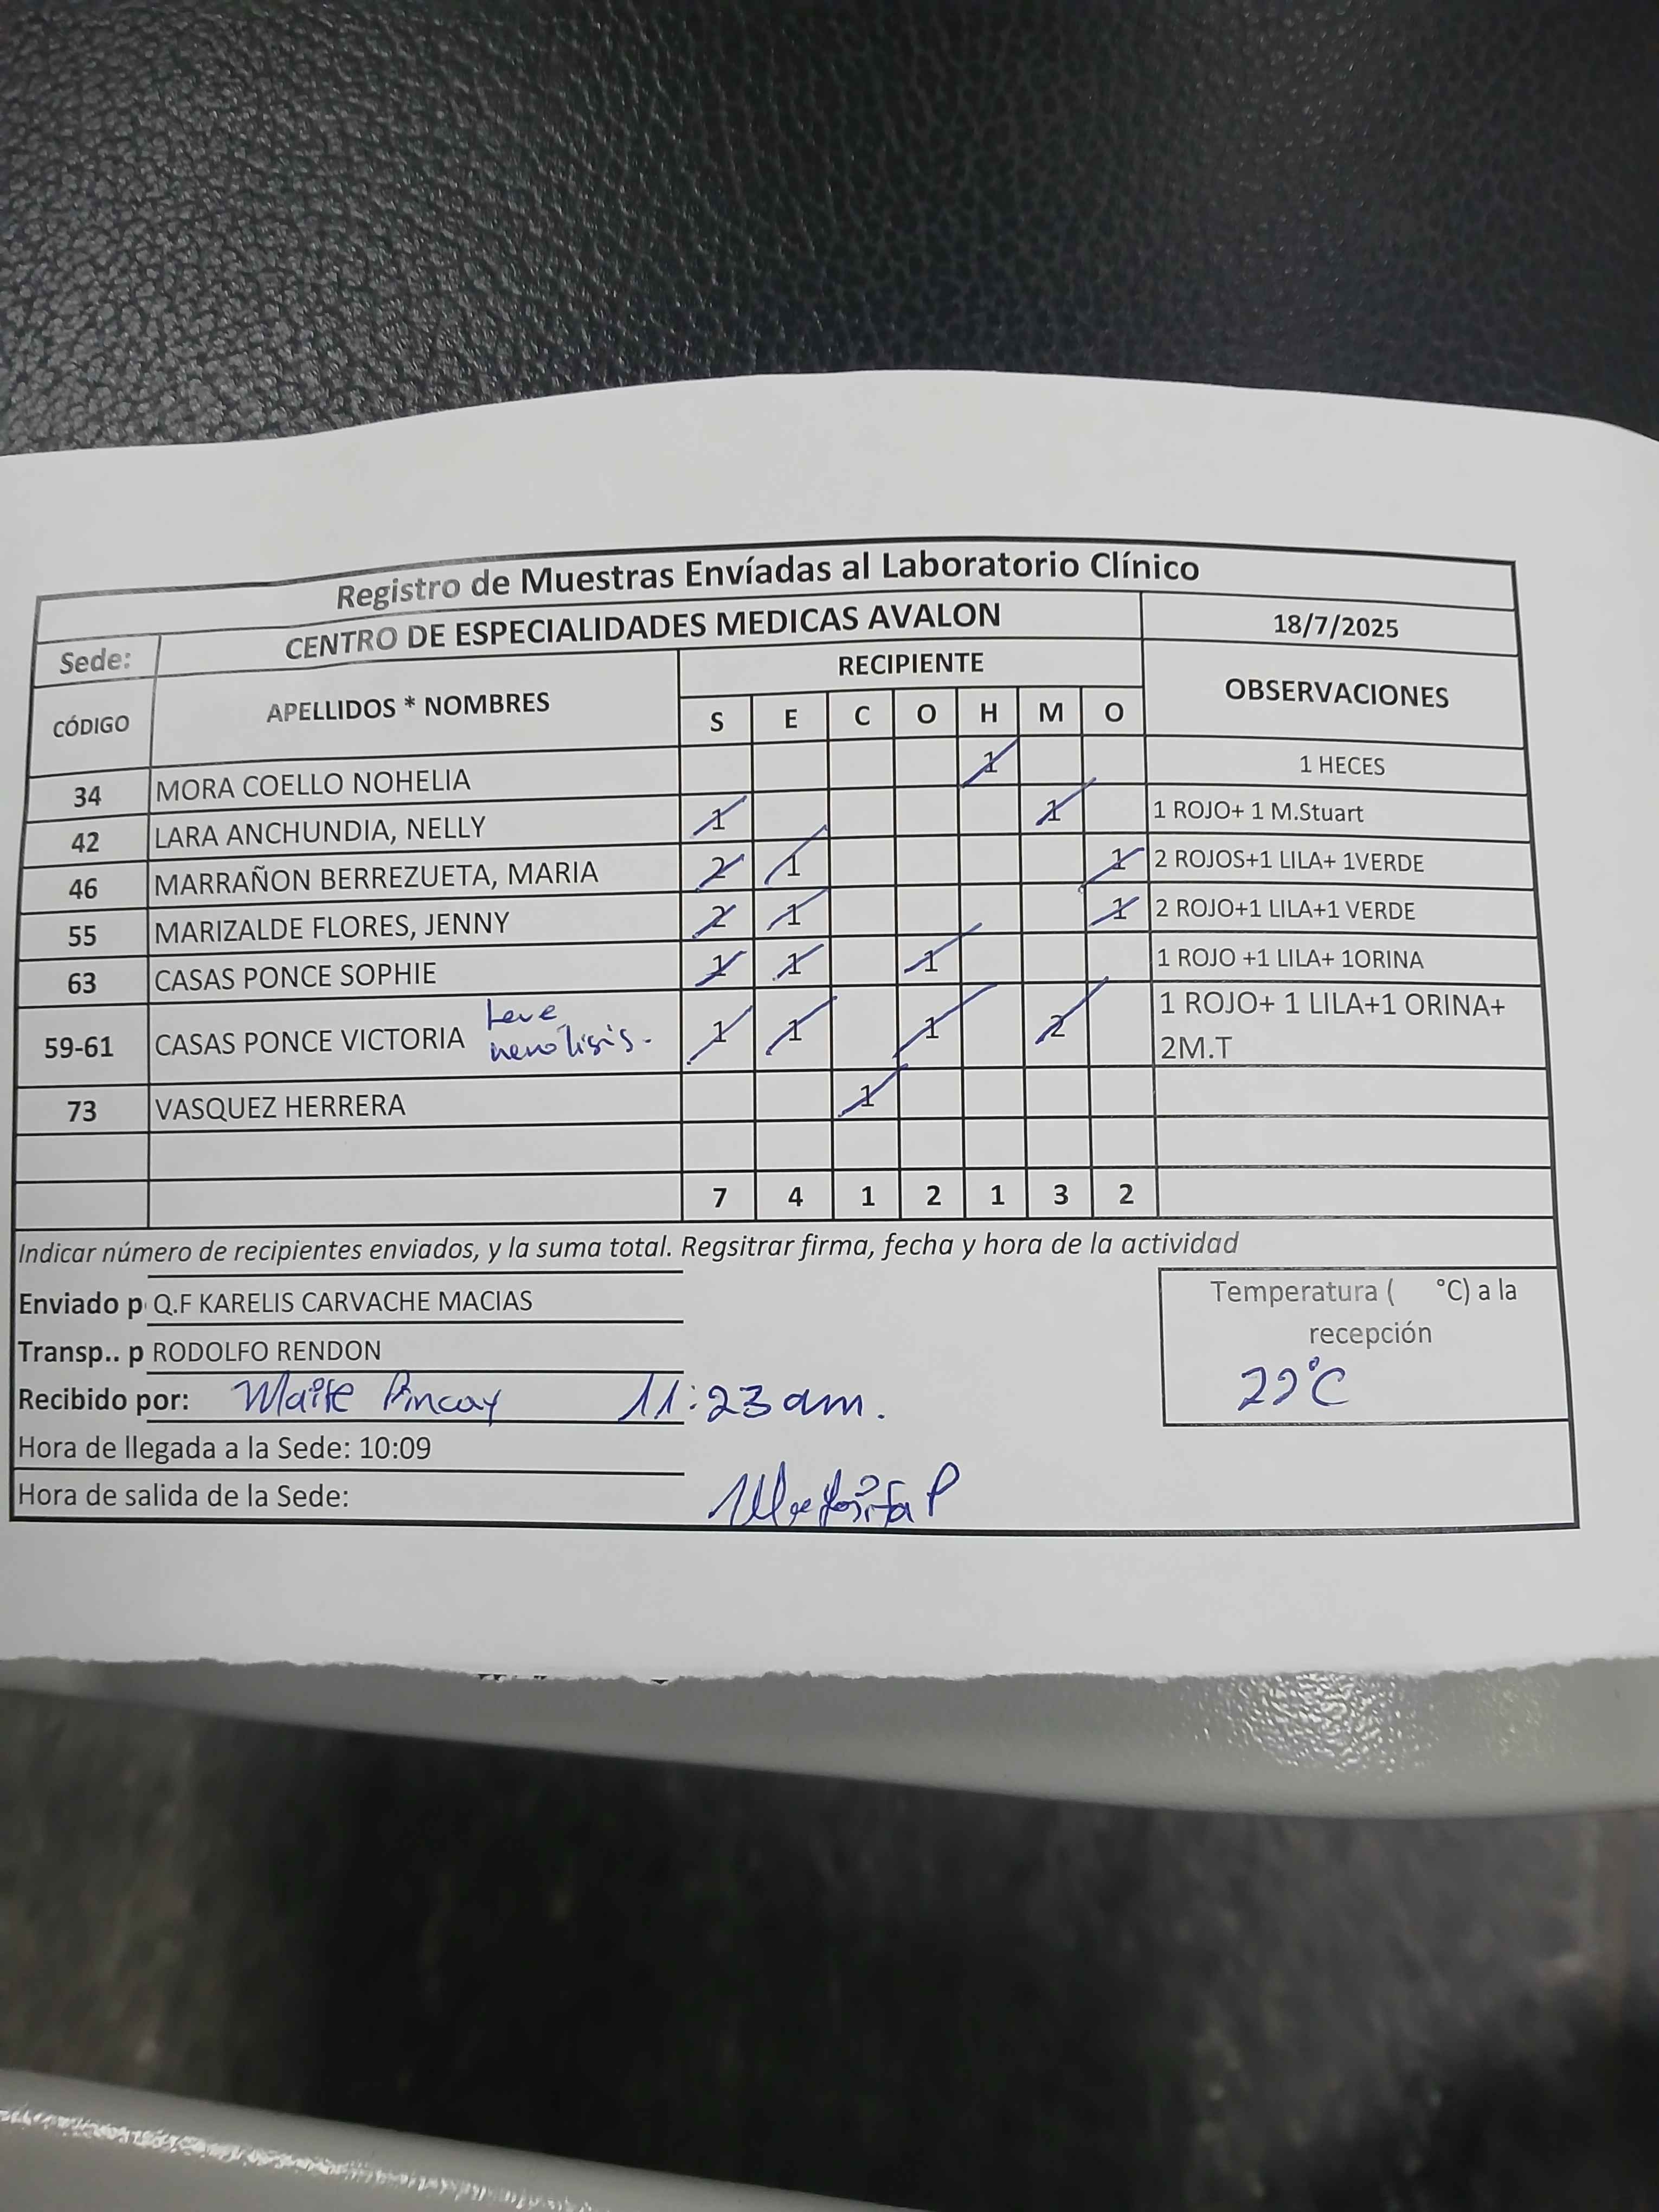 Registro de Muestras Envíadas al Laboratorio Clínico
Sede: CENTRO DE ESPECIALIDADES MEDICAS AVALON 18/7/2025
CÓDIGO APELLIDOS * NOMBRES RECIPIENTE OBSERVACIONES
S E C O H M O
34 MORA COELLO NOHELIA 1 1 HECES
42 LARA ANCHUNDIA, NELLY 1 1 1 ROJO+ 1 M.Stuart
46 MARRAÑON BERREZUETA, MARIA 2 1 1 2 ROJOS+1 LILA+ 1VERDE
55 MARIZALDE FLORES, JENNY 2 1 1 2 ROJO+1 LILA+1 VERDE
63 CASAS PONCE SOPHIE 1 1 1 1 ROJO +1 LILA+ 1ORINA
59-61 CASAS PONCE VICTORIA Leve hemólisis. 1 1 1 2 1 ROJO+ 1 LILA+1 ORINA+
2M.T
73 VASQUEZ HERRERA 1
7 4 1 2 1 3 2
Indicar número de recipientes enviados, y la suma total. Regsitrar firma, fecha y hora de la actividad
Enviado p Q.F KARELIS CARVACHE MACIAS
Transp.. p RODOLFO RENDON
Recibido por: Maite Pincay 11:23 am.
Hora de llegada a la Sede: 10:09
Hora de salida de la Sede:
Temperatura ( °C) a la
recepción
22°C